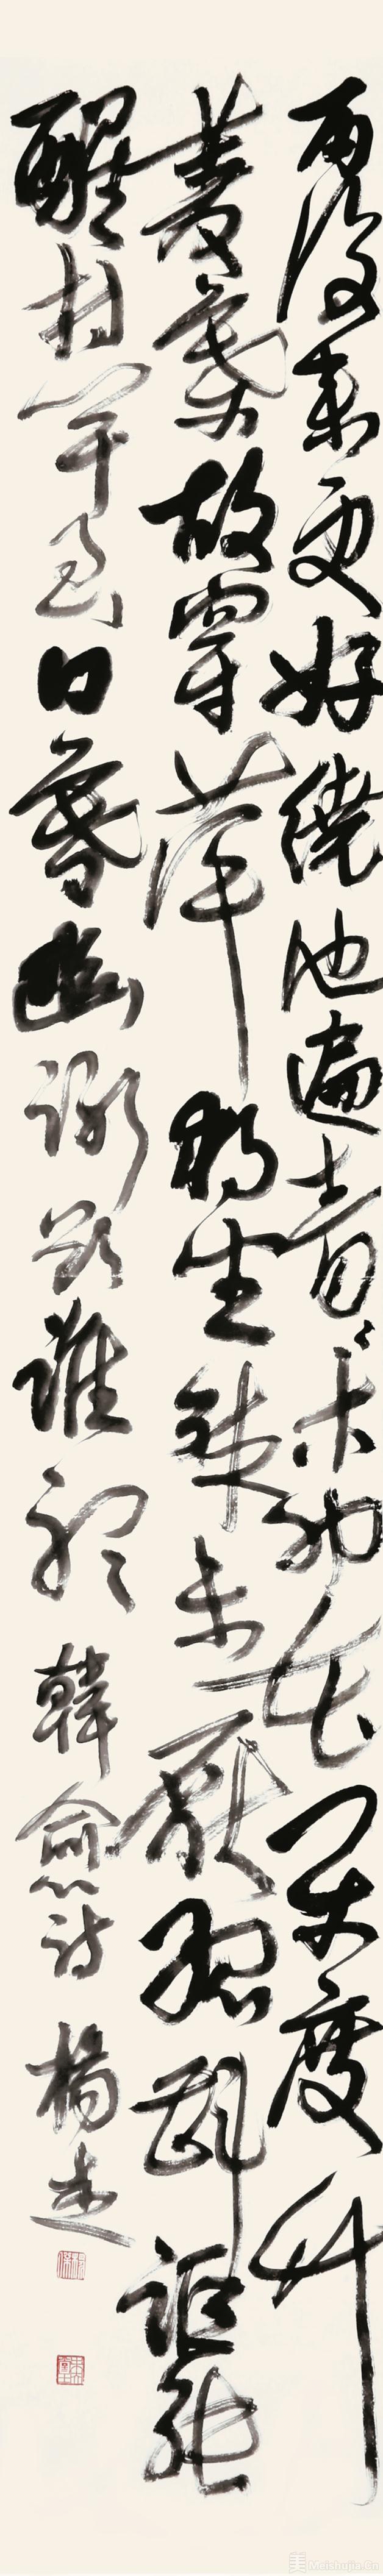 雨後来更好繞池遍青々柳花閒度竹
菱葉故穿萍獨坐殊未厭孤斟詎能
醒持竿至日暮幽詠欲誰聽 韓愈詩 楊杰
美 Meishujia.Cn